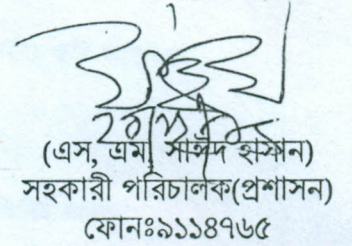 (এস, এম সাঈদ হাসান)
সহকারী পরিচালক(প্রশাসন)
ফোনঃ৯১১৪৭৬৫